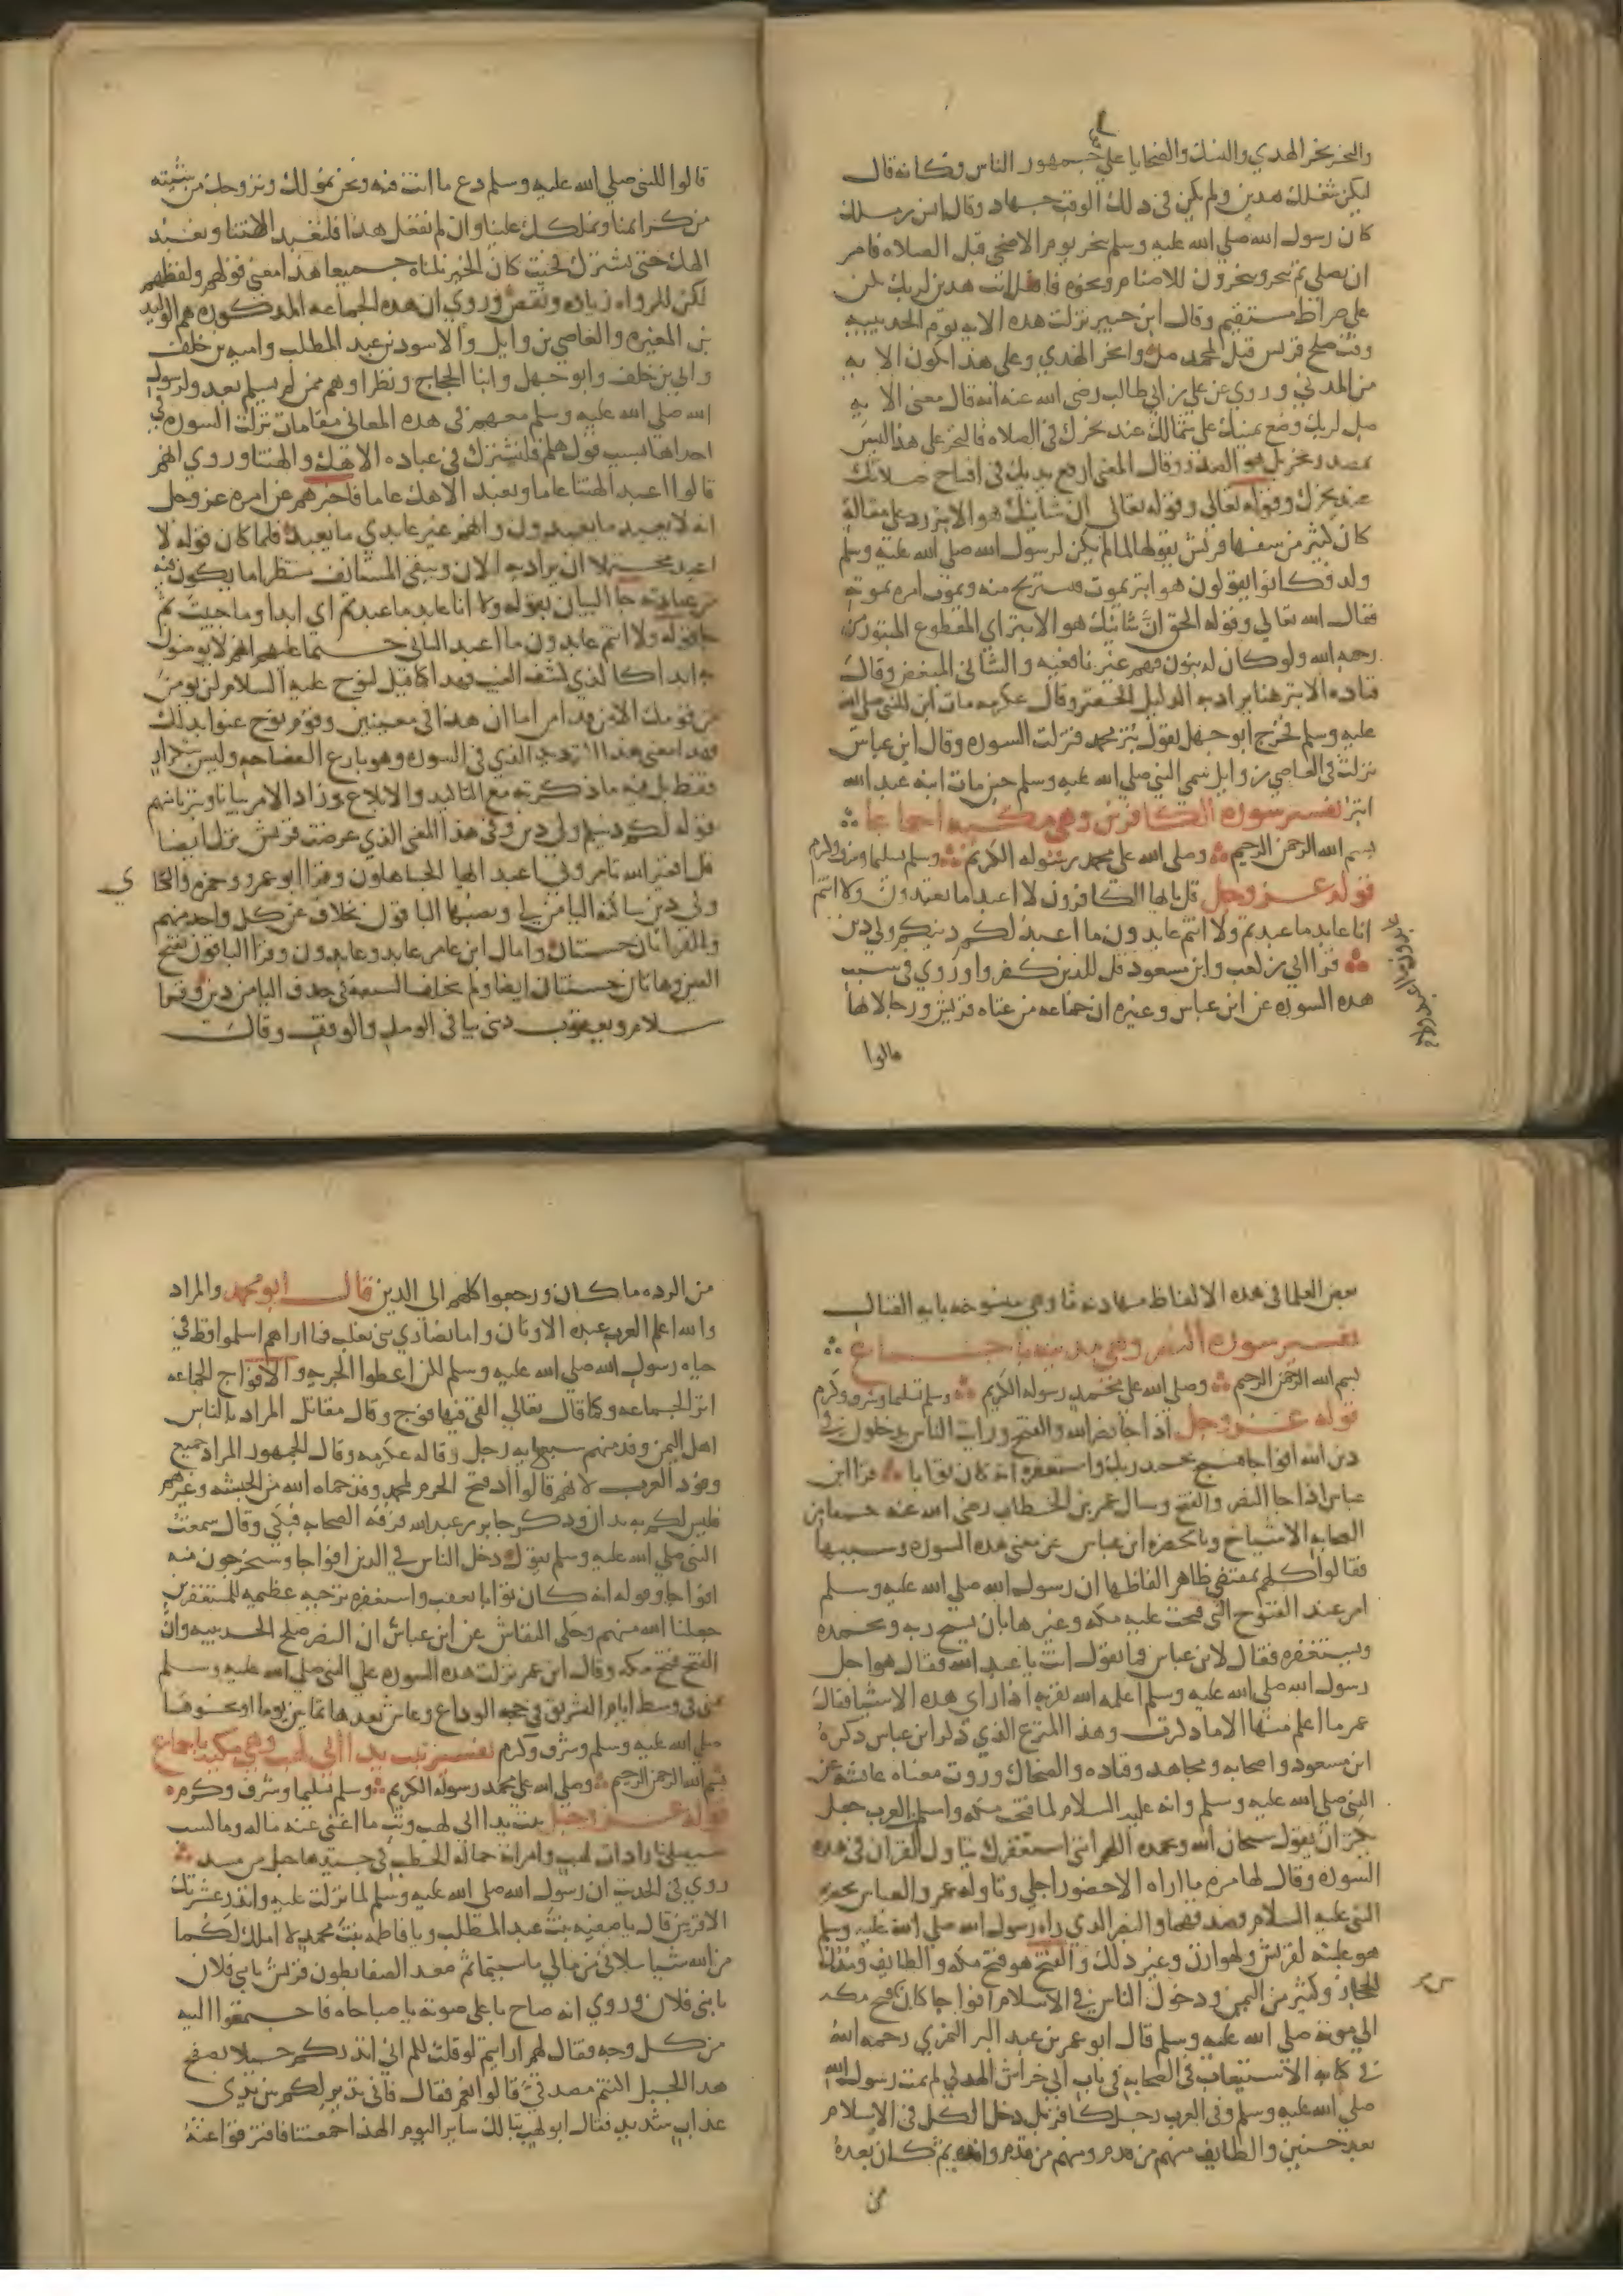 والنحر نحر الهدي والنسك والضحايا علي جمهور الناس وكانه قال
ليكن شغلك هدين ولم يكن في ذلك الوقت جهاد وقال انس بن مالك
كان رسول الله صلي الله عليه وسلم ينحر يوم الاضحي قبل الصلاه فامر
ان يصلي ثم ينحر
علي صراط مستقيم وقال ابن جبير نزلت هذه الايه يوم الحديبيه
وقت صلح قريش قيل لمحمد صل وانحر الهدي وعلي هذا تكون الايه
من المدني وروي عن علي بن ابي طالب رضي الله عنه انه قال معني الايه
صل لربك وضع يمينك علي شمالك عند نحرك في الصلاه فالنحر علي هذا ليس
بمصدر نحر بل هو الصدر وقال المعني ارفع يديك في افتتاح صلاتك
عند نحرك وقوله تعالي وقوله تعالي ان شانئك هو الابتر رد علي مقالة
كان كثير من سفها قريش يقولها لما لم يكن لرسول الله صلي الله عليه وسلم
ولد فكانوا يقولون هو ابتر يموت فنستريح منه ويموت امره بموته
فقال الله تعالي وقوله الحق ان شانئك هو الابتر اي المقطوع المبتور من
رحمه الله ولو كان له بنون فهم غير نافعيه والشاني المبغض وقال
قتاده الابتر هنا يراد به الذليل الحقير وقال عكرمه مات ابن للنبي صلي الله
عليه وسلم فخرج ابو جهل يقول بتر محمد فنزلت السوره وقال ابن عباس
نزلت في العاصي بن وايل سمي النبي صلي الله عليه وسلم حين مات ابنه عبد الله
ابتر تفسير سورة الكافرين وهي مكيه اجماعا
بسم الله الرحمن الرحيم وصلي الله علي محمد رسوله الكريم وسلم تسليما وشرف وكرم
قوله عز وجل قل يايها الكافرون لا اعبد ما تعبدون ولا انتم
انا عابد ما عبدتم ولا انتم عابدون ما اعبد لكم دينكم ولي دين
قرا ابي بن كعب وابن مسعود قل للذين كفروا وروي في سبب
هذه السوره عن ابن عباس وغيره ان جماعه من عتاه قريش ورجالاتها
قالوا
قالوا للنبي صلي الله عليه وسلم دع ما انت فيه ونحن نمولك ونزوجك من شيته
من كرايمنا ونملكك علينا وان لم تفعل هذا فلتعبد الهتنا ونعبد
الهك حتي نشترك فحيث كان الخير نلناه جميعا هذا معني قولهم ولفظهم
لكن للرواه زياده ونقص وروي ان هذه الجماعه المذكوره هم الوليد
بن المغيره والعاصي بن وايل والاسود بن عبد المطلب واميه بن خلف
وابي بن خلف وابو جهل وابنا الحجاج ونظراوهم ممن لم يسلم بعد ولرسول
الله صلي الله عليه وسلم معهم في هذه المعاني مقامات نزلت السوره في
احداها بسبب قولهم هلم فلنشترك في عباده الاهك والهتنا وروي انهم
قالوا اعبد الهتنا عاما ونعبد الاهك عاما فاخبرهم عن امره عز وجل
انه لا يعبد ما يعبدون وانهم غير عابدي ما يعبد فلما كان قوله لا
اعبد محتملا ان يراد به الان ويبقي المستانف منتظرا ما يكون فيه
من عبادته جا البيان بقوله ولا انا عابد ما عبدتم اي ابدا وما حييت ثم
جا قوله ولا انتم عابدون ما اعبد الثاني حتما عليهم انهم لا يومنون
به ابدا كالذي كشف الغيب فهذا كما قيل لنوح عليه السلام لن يومن
من قومك الا من قد امن اما ان هذا في معينين وقوم نوح عموا بذلك
فهذا معني هذا الترديد الذي في السوره وهو بارع الفصاحه وليس بتكرار
فقط بل فيه ما ذكرته مع التاكيد والابلاغ وزاد الامر بيانا وتبريا منهم
قوله لكم دينكم ولي دين وفي هذا المعني الذي عرضت قريش نزل ايضا
قل افغير الله تامروني اعبد ايها الجاهلون وقرا ابو عمرو وحمزه والكسا ي
ولي دين ساكنه اليا من لي ونصبها الباقون بخلاف عن كل واحد منهم
والقراتان حسنتان وامال ابن عامر عابد وعابدون وقرا الباقون بفتح
العين وهاتان حسنتان ايضا ولم يختلف السبعة في حذف اليا من دين وقرا
سلام ويعقوب ديني بيا في الوصل والوقف وقال
بعض العلما في هذه الالفاظ مهادنه ما وهي منسوخه بايه القتال
تفسير سورة النصر وهي مدنيه باجماع
بسم الله الرحمن الرحيم وصلي الله علي محمد رسوله الكريم وسلم تسليما وشرف وكرم
قوله عز وجل اذا جا نصر الله والفتح ورايت الناس يدخلون في
دين الله افواجا فسبح بحمد ربك واستغفره انه كان توابا قرا ابن
عباس اذا جا النصر والفتح وسال عمر بن الخطاب رضي الله عنه جمعا من
الصحابه الاشياخ وبالحضره ابن عباس عن معني هذه السوره وسببها
فقالوا كلهم بمقتضي ظاهر الفاظها ان رسول الله صلي الله عليه وسلم
امر عند الفتوح التي فتحت عليه مكه وغيرها بان يسبح ربه ويحمده
ويستغفره فقال لابن عباس فما تقول انت يا عبد الله فقال هو اجل
رسول الله صلي الله عليه وسلم اعلمه الله بقربه اذا راي هذه الاشيا فقال
عمر ما اعلم منها الا ما ذكرت وهذا المنزع الذي ذكر ابن عباس ذكره
ابن مسعود واصحابه ومجاهد وقتاده والضحاك وروت معناه عائشه عن
النبي صلي الله عليه وسلم وانه عليه السلام لما فتحت مكه واسلم العرب جعل
يكثر ان يقول سبحان الله وبحمده اللهم اني استغفرك يتاول القران في هذه
السوره وقال لها مره ما اراه الا حضور اجلي وتاوله عمر والعباس بحضره
النبي عليه السلام فصدقهما والنصر الذي راه رسول الله صلي الله عليه وسلم
هو غلبته لقريش ولهوازن وغير ذلك والفتح هو فتح مكه والطايف ومدن
الحجاز وكثير من اليمن ودخول الناس في الاسلام افواجا كان من فتح مكه
الي موته صلي الله عليه وسلم قال ابو عمر بن عبد البر النمري رحمه الله
في كتابه الاستيعاب في الصحابه في باب ابي خراش الهذلي لم يمت رسول الله
صلي الله عليه وسلم وفي العرب رجل كافر بل دخل الكل في الاسلام
بعد حنين والطايف منهم من قدم ومنهم من قدم وافده ثم كان بعده
من
من الرده ما كان ورجعوا كلهم الي الدين قال ابو محمد والمراد
والله اعلم العرب عبده الاوثان واما نصاري بني تغلب فما اراهم اسلموا قط في
حياه رسول الله صلي الله عليه وسلم لكن اعطوا الجزيه والافواج الجماعه
اثر الجماعه وكما قال تعالي القي فيها فوج وقال مقاتل المراد بالناس
اهل اليمن وفد منهم سبعمايه رجل وقاله عكرمه وقال الجمهور المراد جميع
وفود العرب لانهم قالوا اذ فتح الحرم لمحمد وقد حماه الله من الحبشه وغيرهم
فليس لكم به يدان وذكر جابر بن عبد الله فرقه الصحابه فبكي وقال سمعت
النبي صلي الله عليه وسلم يقول دخل الناس في الدين افواجا وسيخرجون منه
افواجا وقوله انه كان توابا بعقب واستغفره ترجيه عظيمه للمستغفرين
جعلنا الله منهم وحكي النقاش عن ابن عباس ان النصر صلح الحديبيه وان
الفتح فتح مكه وقال ابن عمر نزلت هذه السوره علي النبي صلي الله عليه وسلم
بمني في وسط ايام التشريق في حجه الوداع وعاش بعدها ثمانين يوما او نحوها
صلي الله عليه وسلم وشرف وكرم تفسير تبت يدا ابي لهب وهي مكيه باجماع
بسم الله الرحمن الرحيم وصلي الله علي محمد رسوله الكريم وسلم تسليما وشرف وكرم
قوله عز وجل تبت يدا ابي لهب وتب ما اغني عنه ماله وما كسب
سيصلي نارا ذات لهب وامراته حماله الحطب في جيدها حبل من مسد
روي في الحديث ان رسول الله صلي الله عليه وسلم لما نزلت عليه وانذر عشيرتك
الاقربين قال يا صفيه بنت عبد المطلب ويا فاطمه بنت محمد لا املك لكما
من الله شيا سلاني من مالي ما شيتما ثم صعد الصفا بطون قريش يا بني فلان
يا بني فلان وروي انه صاح باعلي صوته يا صباحاه فاجتمعوا اليه
من كل وجه وقال لهم ارايتم لو قلت لكم اني انذركم خيلا بسفح
هذا الجبل اكنتم مصدقي قالوا نعم فقال فاني نذير لكم بين يدي
عذاب شديد فقال ابو لهب تبا لك ساير اليوم الهذا اجمعتنا فافترقوا عنه